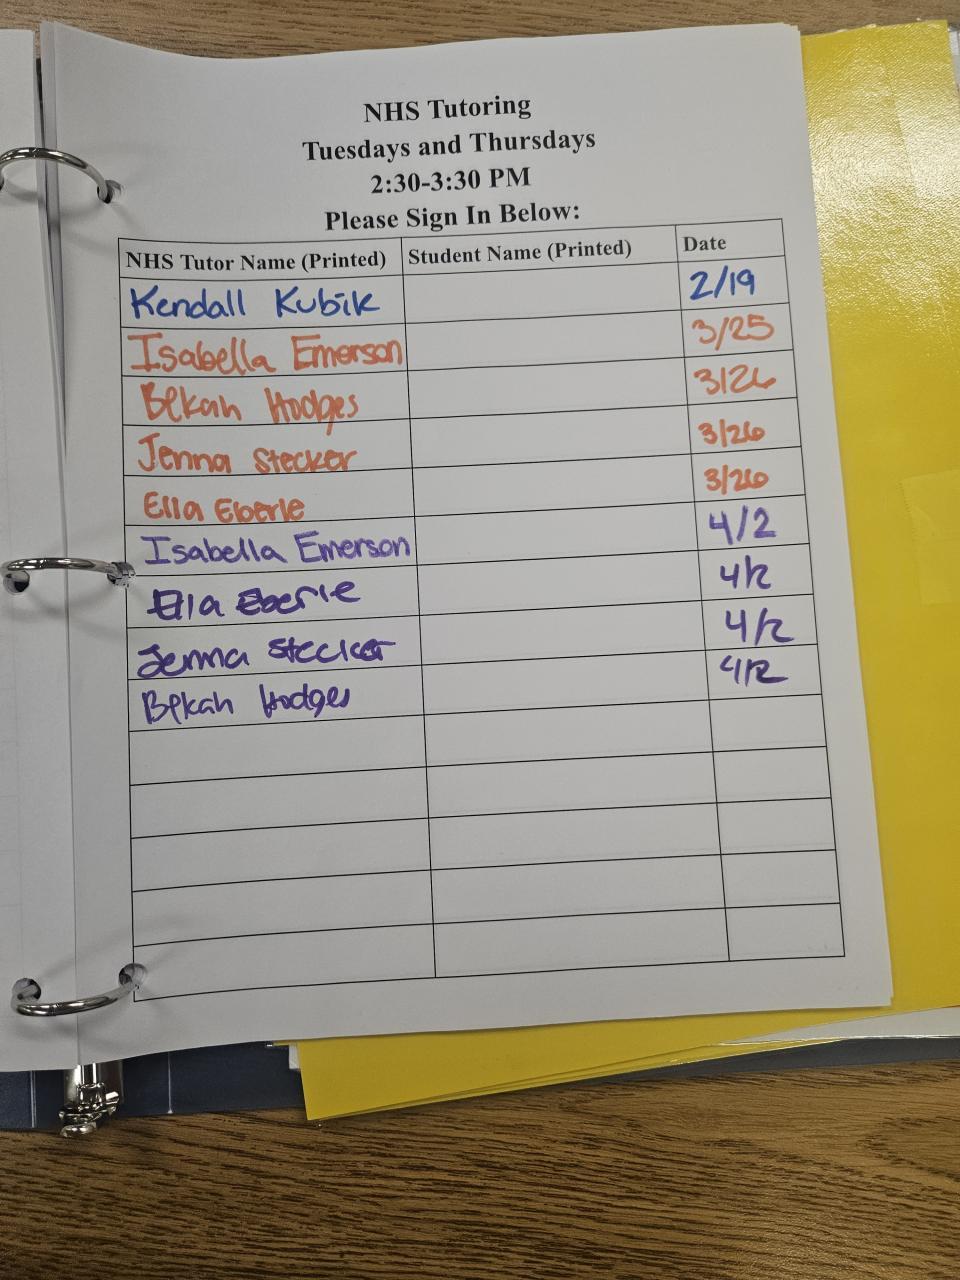 NHS Tutoring
Tuesdays and Thursdays
2:30-3:30 PM
Please Sign In Below:
NHS Tutor Name (Printed) Student Name (Printed) Date
Kendall Kubik 2/19
Isabella Emerson 3/25
Bekah Hodges 3/26
Jenna Stecker 3/26
Ella Eberle 3/26
Isabella Emerson 4/2
Ella Eberle 4/2
Jenna Stecker 4/2
Bekah Hodges 4/2